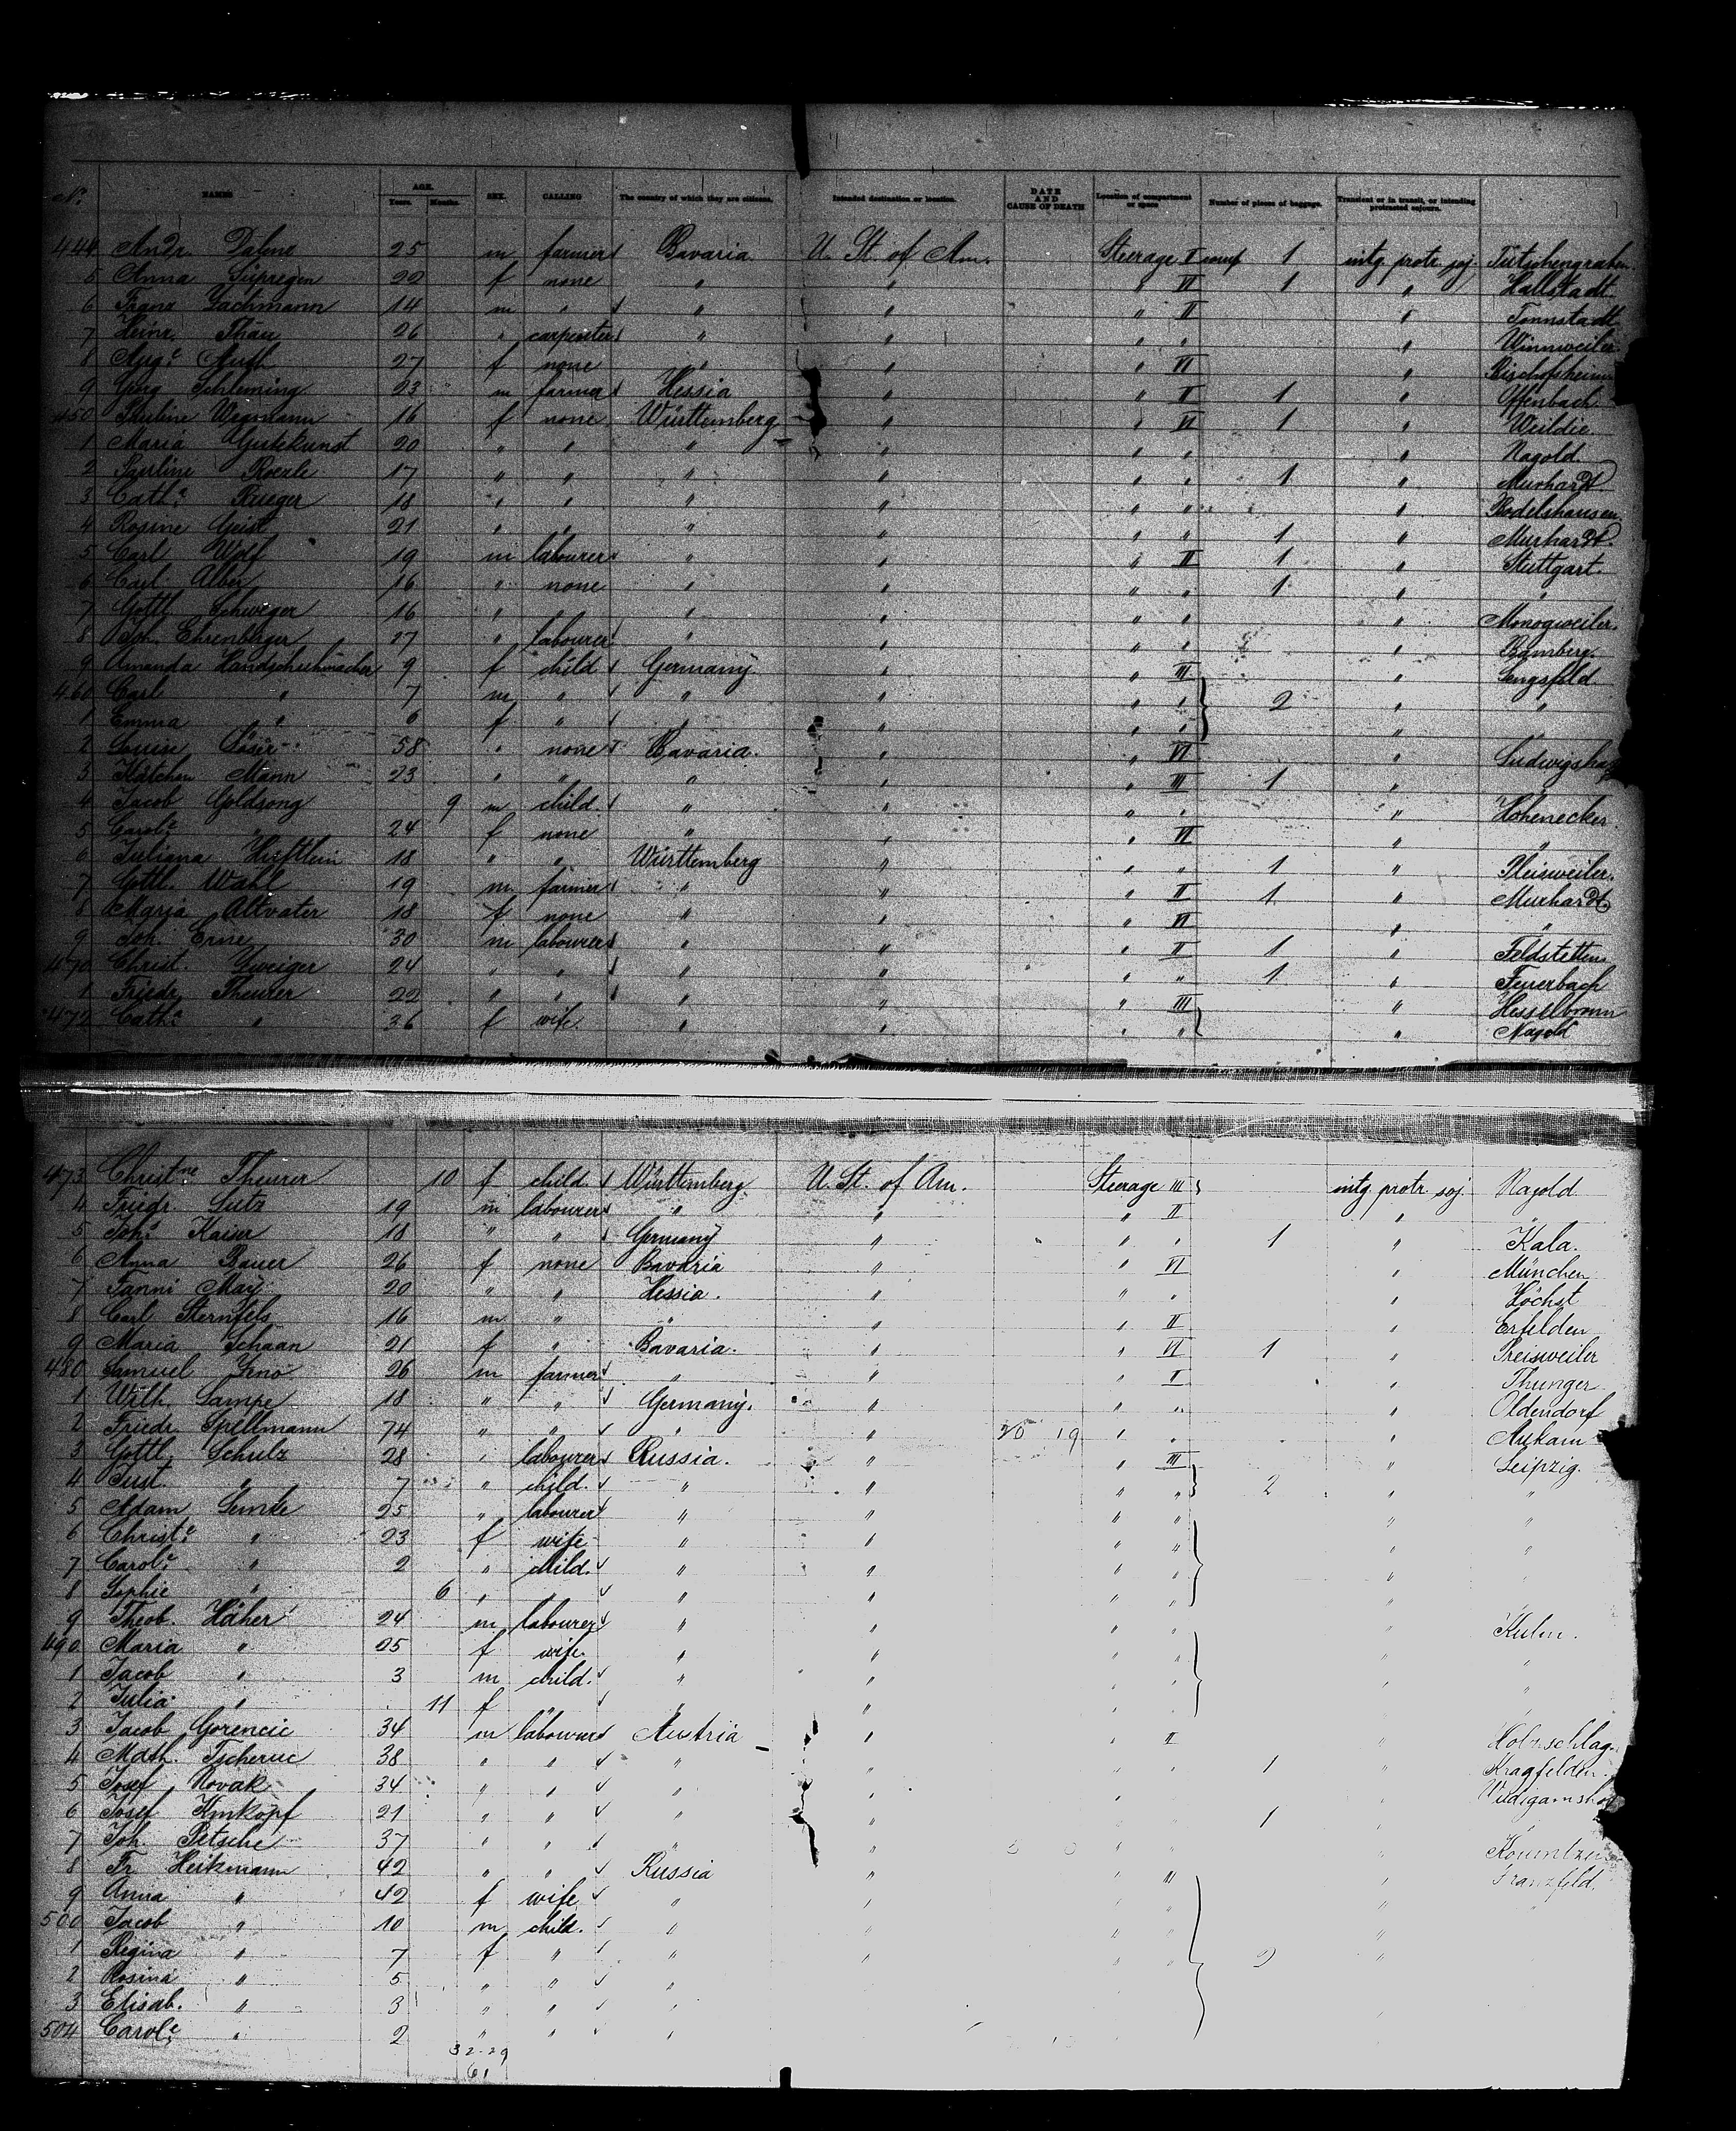 No. NAMES AGE. Years. Months. SEX. CALLING The country of which they are citizens. Intended destination or location. DATE AND CAUSE OF DEATH Location of compartment or space Number of pieces of baggage. Transient or in transit, or intending protracted sojourn.
444 Andr. 25 m farmer Bavaria U. St. of Am. Steerage I comp 1 intg. protr. soj. Tütschengraben
5 Anna 22 f none " " " VI 1 " Hallstadt
6 Franz Lachmann 14 m " " " " II "
7 Heinr. Thau 26 " carpenter " " " " " Winnweiler
8 Aug.e Muth 27 f none " " " VI " Bischofsheim
9 Georg Schleming 23 m farmer Hessia " " II 1 " Offenbach
450 Pauline Wegmann 16 f none Württemberg " " VI 1 "
1 Maria Gutekunst 20 " " " " " " " Nagold
2 17 " " " " " " 1 " Murhardt
3 Cath.e Krieger 18 " " " " " " " Bodelshausen
4 Rosine Geist 21 " " " " " " 1 " Murhardt.
5 Carl Wolf 19 m labourer " " " II 1 " Stuttgart.
6 Carl Alber 16 " none " " " " 1 " "
7 Gottl. 16 " " " " " " "
8 Joh. Ehrenberger 27 " labourer " " " " " Bamberg.
9 Amanda Handschuhmacher 9 f child Germany " " III " Lengsfeld
460 Carl " 7 m " " " " " 2 " "
1 Emma " 6 f " " " " " "
2 Louise 58 " none Bavaria. " " VI " Ludwigshaf
3 Kätchen Mann 23 " " " " " III 1 "
4 Jacob Goldsong 9 m child " " " " " Hohenecker
5 Carol.e " 24 f none " " " VI " "
6 Juliana Hüftlein 18 " " Württemberg " " " 1 " Pleisweiler.
7 Gottl. Wahl 19 m farmer " " " II 1 " Murhardt
8 Maria Altvater 18 f none " " " VI " "
9 Joh. Erne 30 m labourer " " " II 1 " Feldstetten
470 Christ. Zweiger 24 " " " " " " 1 " Feuerbach
1 Friedr. Theurer 22 " " " " " III " Hesselbronn
472 Cath.e " 36 f wife. " " " " " Nagold
473 Christ.ne Theurer 10 f child Württemberg U. St. of Am. Steerage III intg. protr. soj. Nagold
4 Friedr. Lutz 19 m labourer " " " II " "
5 Joh.s Kaiser 18 " " Germany " " " 1 " Kala.
6 Anna Bauer 26 f none Bavaria " " VI " München
7 Fanni May 20 " " Hessia. " " " " Höchst
8 Carl Sternfels 16 m " " " " II " Erfelden
9 Maria Schaan 21 f " Bavaria. " " VI 1 " Preisweiler
480 Samuel 26 m farmer " " " II " Thunger
1 Wilh. Lampe 18 " " Germany. " " " " Oldendorf
2 Friedr. Spellmann 74 " " " " 20 19 " " "
3 Gottl. Schulz 28 " labourer Russia. " " III " Leipzig.
4 Just. " 7 " child. " " " " 2 " "
5 Adam Lemke 25 " labourer " " " " " "
6 Christ.e " 23 f wife " " " " " "
7 Carol.e " 2 " child. " " " " "
8 Sophie " 6 " " " " " " "
9 Theob. Häher 24 m labourer " " " " " Kulm.
490 Maria " 25 f wife. " " " " " "
1 Jacob " 3 m child. " " " " " "
2 Julia " 11 f " " " " "
3 Jacob Gorencic 34 m labourer Austria " " II " Holzschlag.
4 Math. Tscherne 38 " " " " " " 1 "
5 Josef Novak 34 " " " "
6 Josef Kmkopf 21 " " " " 1
7 Joh. Petsche 37 " " " " "
8 Fr. Heikmann 42 " " Russia " " III " Franzfeld.
9 Anna " 42 f wife " " " " "
500 Jacob " 10 m child. " " " " "
1 Regina " 7 f " " " " " 2 "
2 Rosina " 5 " " "
3 Elisab. " 3 " " "
504 Carol.e " 2 " " "
32-29
61